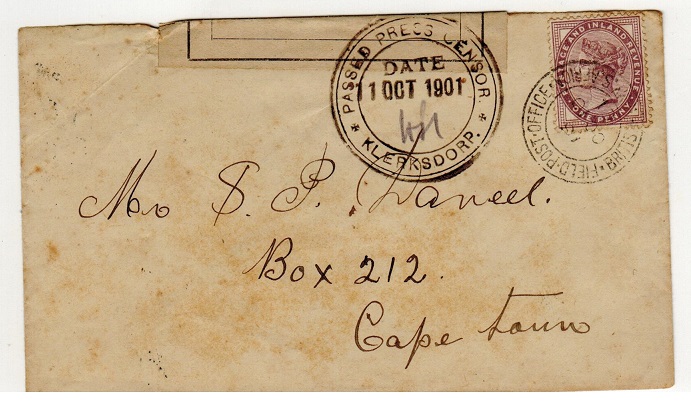 PASSED PRESS CENSOR.
DATE
11 OCT 1901
* KLERKSDORP. *
POSTAGE AND INLAND REVENUE
ONE PENNY
BRITISH · FIELD · POST · OFFICE
Mr S. P. Daneel.
Box 212.
Cape Town